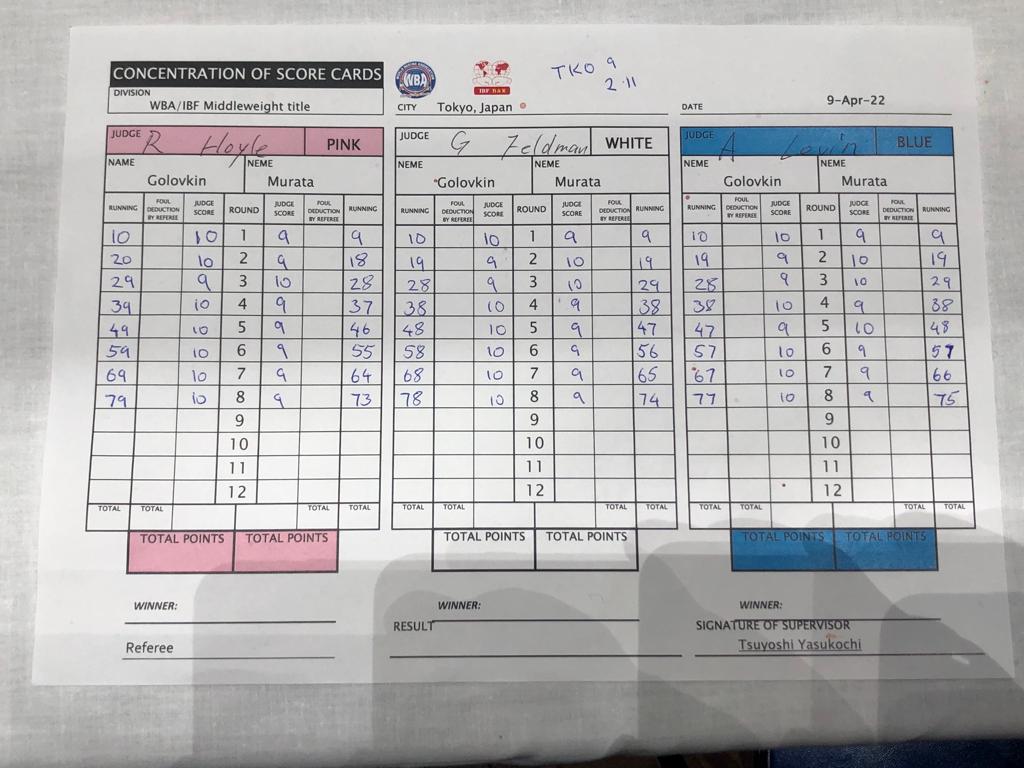 CONCENTRATION OF SCORE CARDS
WBA
IBF BAR
TKO 9
2·11
DIVISION
WBA/IBF Middleweight title
CITY Tokyo, Japan
DATE 9-Apr-22
JUDGE R Hoyle PINK
NAME NEME
Golovkin Murata
RUNNING FOUL DEDUCTION BY REFEREE JUDGE SCORE ROUND JUDGE SCORE FOUL DEDUCTION BY REFEREE RUNNING
10 10 1 9 9
20 10 2 9 18
29 9 3 10 28
39 10 4 9 37
49 10 5 9 46
59 10 6 9 55
69 10 7 9 64
79 10 8 9 73
9
10
11
12
TOTAL TOTAL TOTAL TOTAL
TOTAL POINTS TOTAL POINTS
WINNER:
Referee
JUDGE G Feldman WHITE
NEME NEME
Golovkin Murata
RUNNING FOUL DEDUCTION BY REFEREE JUDGE SCORE ROUND JUDGE SCORE FOUL DEDUCTION BY REFEREE RUNNING
10 10 1 9 9
19 9 2 10 19
28 9 3 10 29
38 10 4 9 38
48 10 5 9 47
58 10 6 9 56
68 10 7 9 65
78 10 8 9 74
9
10
11
12
TOTAL TOTAL TOTAL TOTAL
TOTAL POINTS TOTAL POINTS
WINNER:
RESULT
JUDGE A Levin BLUE
NEME NEME
Golovkin Murata
RUNNING FOUL DEDUCTION BY REFEREE JUDGE SCORE ROUND JUDGE SCORE FOUL DEDUCTION BY REFEREE RUNNING
10 10 1 9 9
19 9 2 10 19
28 9 3 10 29
38 10 4 9 38
47 9 5 10 48
57 10 6 9 57
67 10 7 9 66
77 10 8 9 75
9
10
11
12
TOTAL TOTAL TOTAL TOTAL
TOTAL POINTS TOTAL POINTS
WINNER:
SIGNATURE OF SUPERVISOR
Tsuyoshi Yasukochi